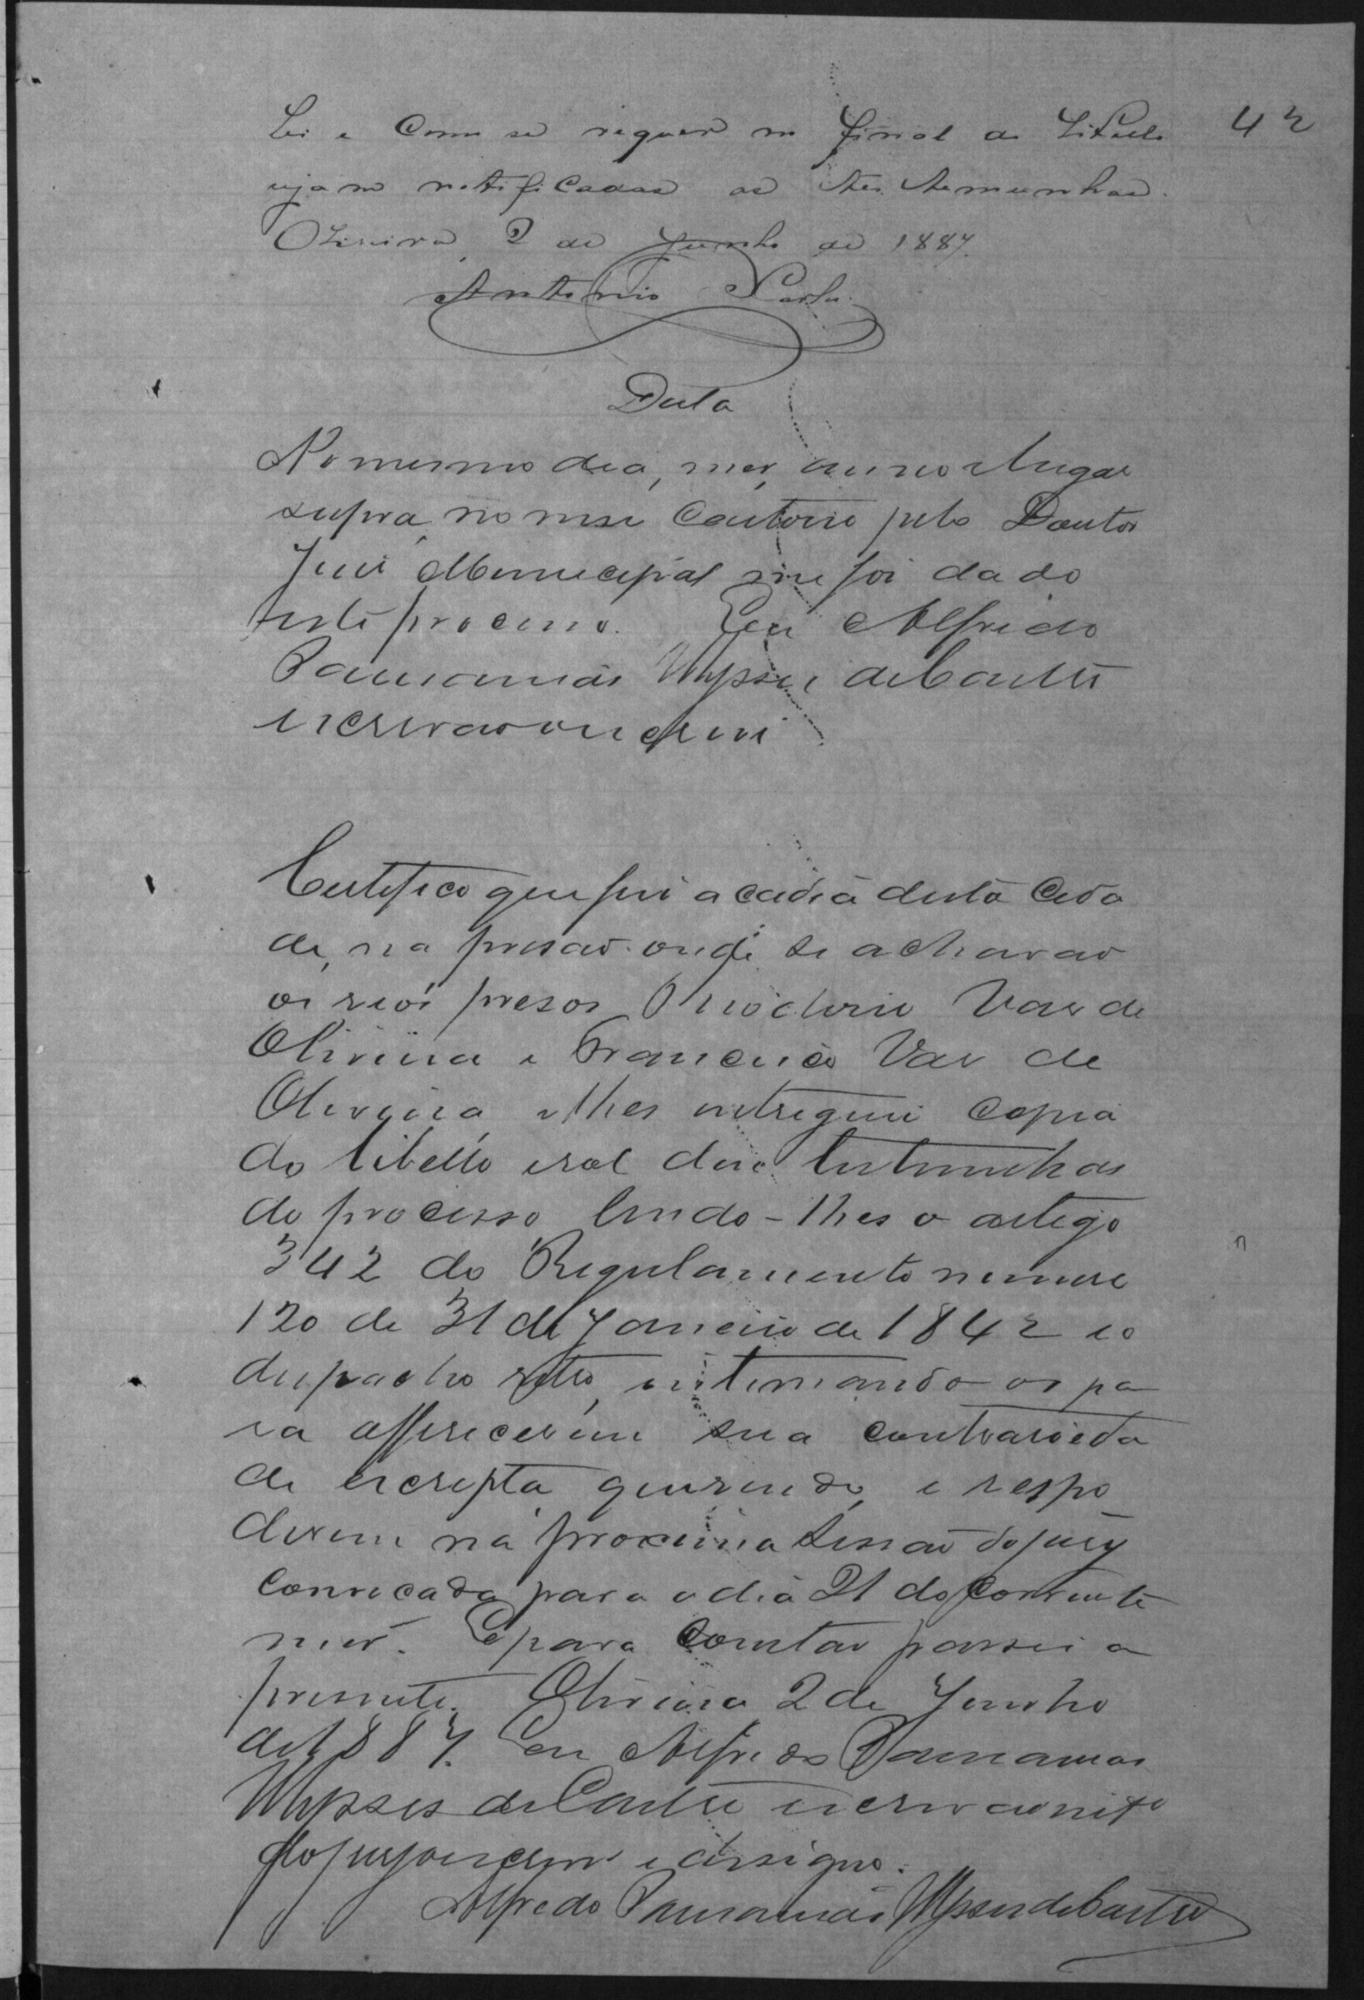 42
Lei e como se requer no final do Libello
sejam notificadas as testemunhas.
Oliveira, 2 de Junho de 1887.
Antonio
Data
No mesmo dia, mez, anno e lugar
supra, no meu Cartorio pelo Doutor
Juiz Municipal me foi dado
este processo. Eu Alfredo
Pausanias Ulysses de Castro
escrivão o escrevi
Certifico que fui a cadeia desta Cida
de, na presão onde se achavão
os reos presos Theodorio Vas de
Oliveira e Francisco Vas de
Oliveira, e lhes entreguei copia
do libello e rol das testimunhas
do processo lendo-lhes o artigo
342 do Regulamento numero
120 de 31 de Janeiro de 1842 e o
despacho retro, intimando-os pa
ra afferecerem sua contrarieda
de escripta querendo, e respo
derem na proxima sessão do jury
convocada para o dia 21 do corrente
mez. E para constar passei a
presente. Oliveira 2 de Junho
de 1887. Eu Alfredo Pausanias
Ulysses de Castro escrivão
do jury o escrevi e assigno.
Alfredo Pausanias Ulysses de Castro